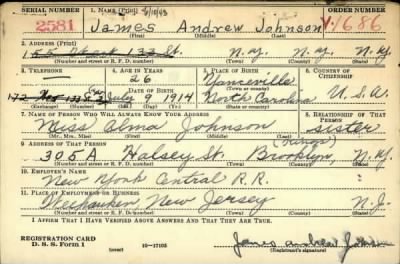 SERIAL NUMBER 1. NAME (Print) ORDER NUMBER
2581 James Andrew Johnson V1686
(First) (Middle) (Last)
2. ADDRESS (Print)
155 133 St. N.Y. N.Y. N.Y.
(Number and street or R. F. D. number) (Town) (County) (State)
3. TELEPHONE 4. AGE IN YEARS 5. PLACE OF BIRTH 6. COUNTRY OF CITIZENSHIP
26 Yanceville
DATE OF BIRTH (Town or county)
July 9 1914 North Carolina U.S.A.
(Exchange) (Number) (Mo.) (Day) (Yr.) (State or country)
7. NAME OF PERSON WHO WILL ALWAYS KNOW YOUR ADDRESS 8. RELATIONSHIP OF THAT PERSON
Miss Alma Johnson sister
(Mr., Mrs., Miss) (First) (Middle) (Last)
9. ADDRESS OF THAT PERSON (Kings)
305A Halsey St. Brooklyn N.Y.
(Number and street or R. F. D. number) (Town) (County) (State)
10. EMPLOYER'S NAME
New York Central R.R.
11. PLACE OF EMPLOYMENT OR BUSINESS
Weehauken New Jersey N.J.
(Number and street or R. F. D. number) (Town) (County) (State)
I AFFIRM THAT I HAVE VERIFIED ABOVE ANSWERS AND THAT THEY ARE TRUE.
REGISTRATION CARD
D. S. S. Form 1 (over) 16—17105 James Andrew Johnson
(Registrant's signature)